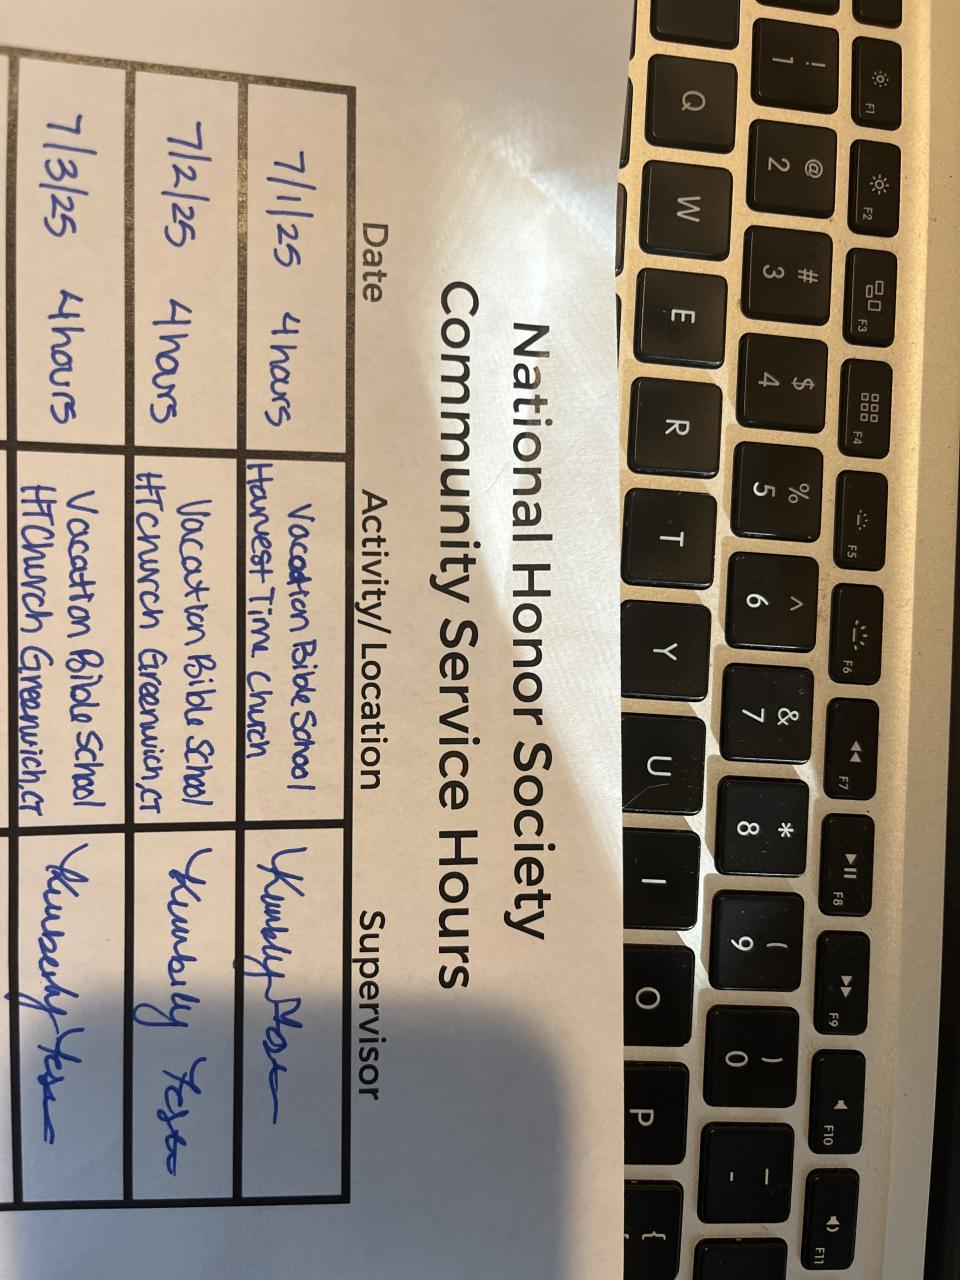 National Honor Society
Community Service Hours
Date Activity/Location Supervisor
7/1/25 4 hours Vacation Bible School
Harvest Time Church
Kimberly
7/2/25 4 hours Vacation Bible School
HTChurch Greenwich, CT
Kimberly
7/3/25 4 hours Vacation Bible School
HTChurch Greenwich, CT
Kimberly
F1 F2 F3 F4 F5 F6 F7 F8 F9 F10 F11
! @ # $ % ^ & * ( ) _
1 2 3 4 5 6 7 8 9 0 -
Q W E R T Y U I O P {